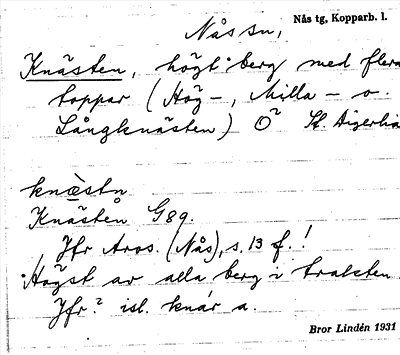 Nås sn,
Nås tg, Kopparb. l.
Knästen, högt berg med flera
toppar (Hög-, Milla- o.
Långknästen) Ö St. Digerlia
knæ̀stn
Knästen G89.
Jfr Aros. (Nås), s. 13 f.!
Högst av alla berg i trakten
Jfr? isl. knár a.
Bror Lindén 1931